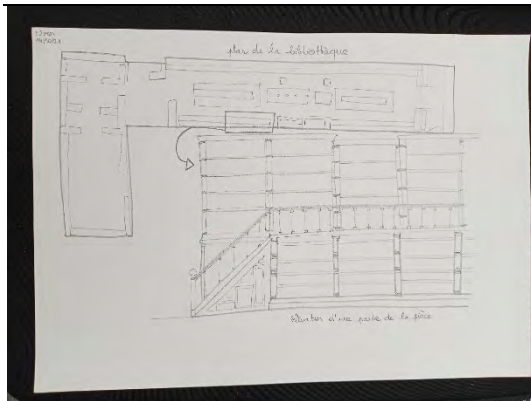 plan de la bibliothèque
élévation d'une partie de la pièce